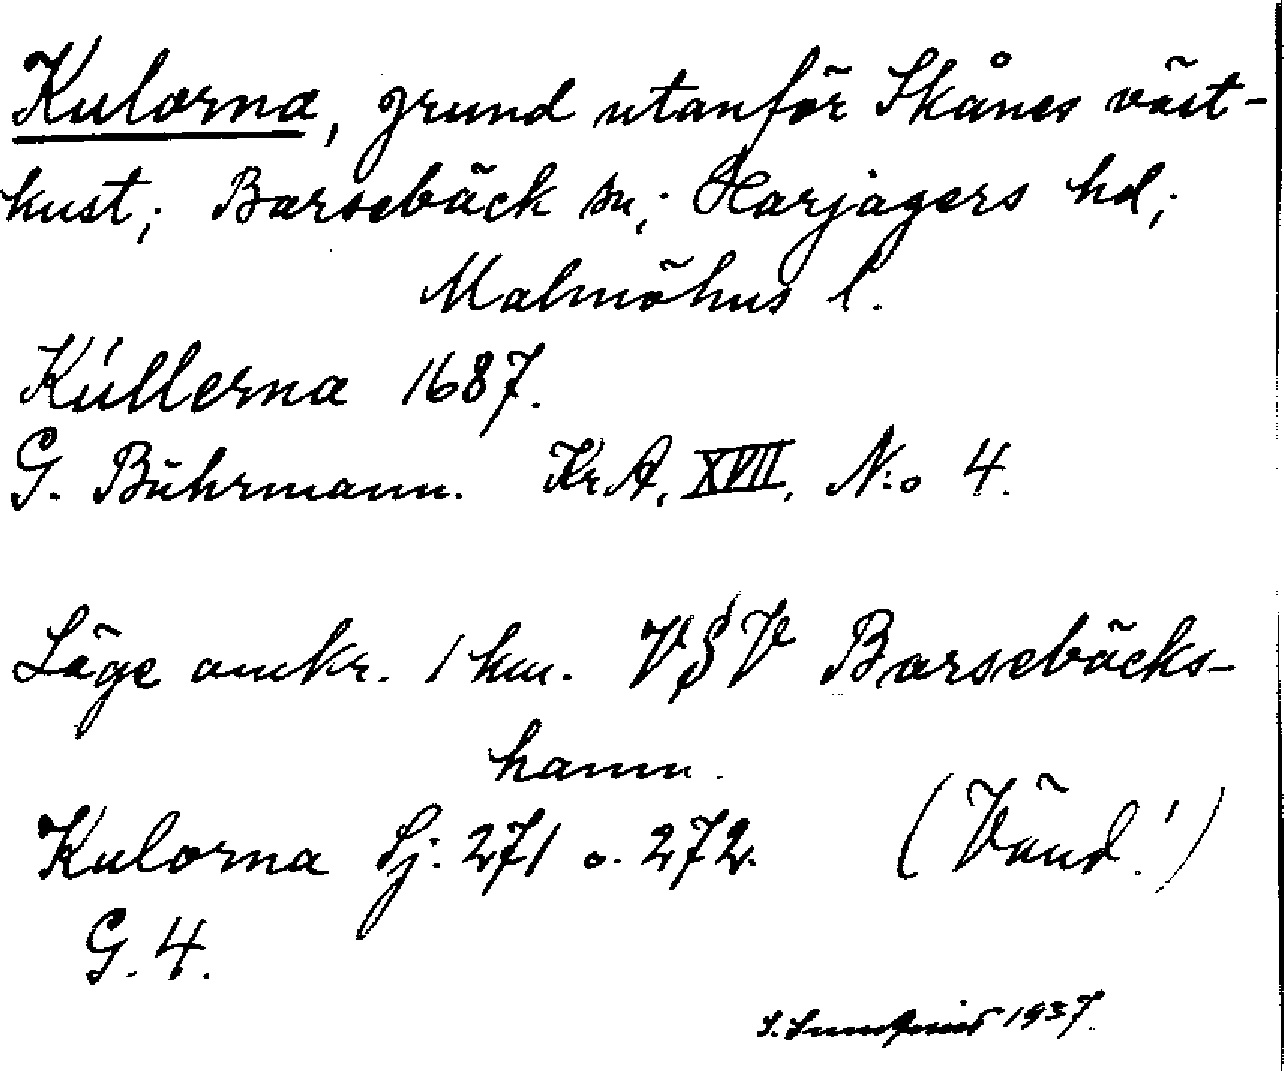 Kulorna, grund utanför Skånes väst-
kust; Barsebäck sn; Harjagers hd;
Malmöhus l.
Kúllerna 1687.
G. Bührmann. Kr.A. XVII. N:o 4.
Läge omkr. 1 km. VSV Barsebäcks-
hamn.
Kulorna Sj. 271 o. 272. (Vänd!)
G. 4.
1937.